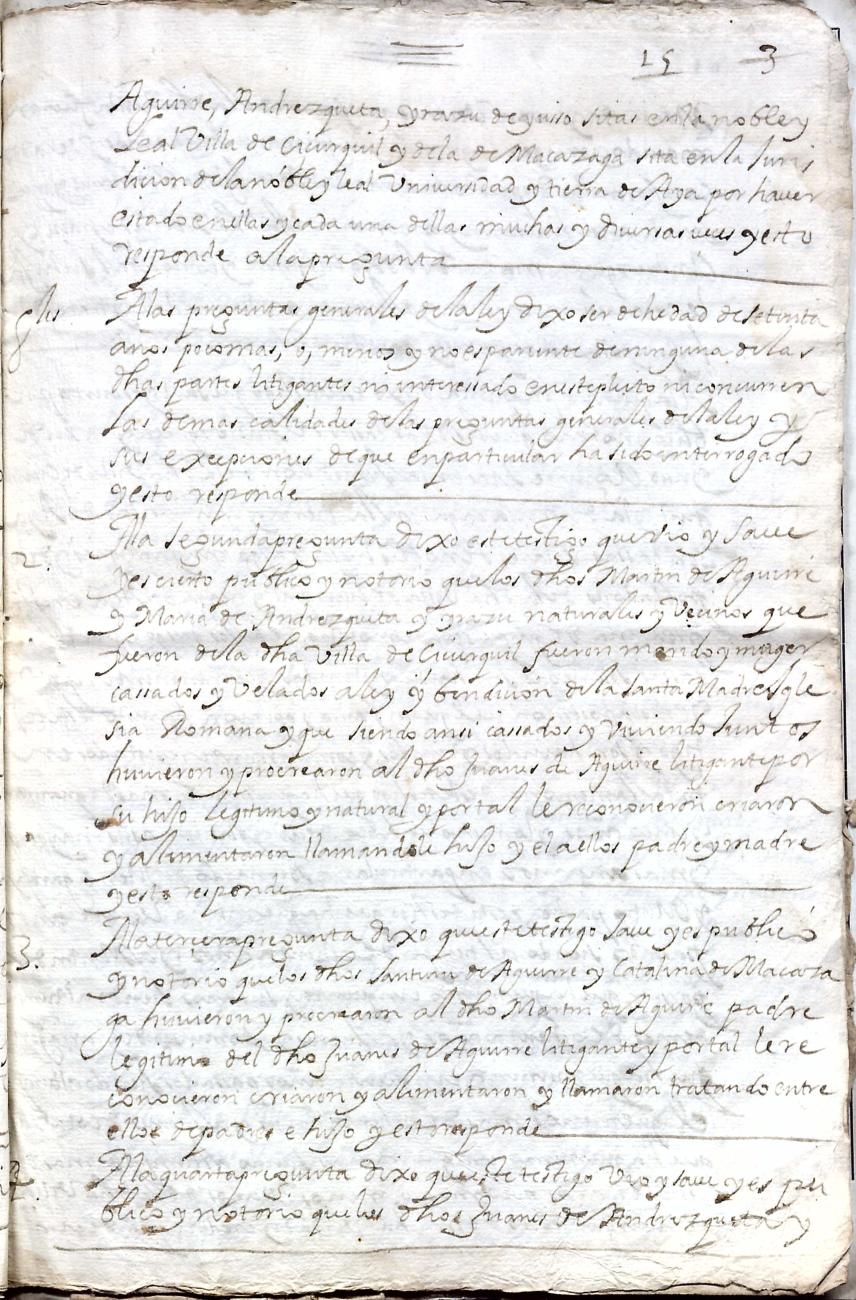 15 3
Aguirre, Andrezqueta, yrazu de yuso sitas en la noble y
Leal Villa de Cicurquil y dela de Macazaga sita en la Juris
dicion dela noble y leal Universidad y tierra de Aya por haver
estado en ellas y cada una dellas muchas y diversas veces y esto
responde a la pregunta
gles
Alas preguntas generales dela ley dixo ser de hedad de setenta
años poco mas, o, menos y no es pariente de ninguna de las
dhas partes litigantes ni interessado en este pleito ni concurren
las demas calidades de las preguntas generales dela ley y
sus excepciones de que en particular ha sido interrogado
y esto responde
2.
Ala segunda pregunta dixo este testigo que vio y save
y es cierto publico y notorio que los dhos Martin de Aguirre
y Maria de Andrezqueta y yrazu naturales y Vecinos que
fueron dela dha Villa de Cicurquil fueron marido y muger
cassados y Velados a ley y bendicion de la santa Madre Igle
sia Romana y que siendo ansi cassados y viviendo Juntos
huvieron y procrearon al dho Juanes de Aguirre litigante por
su hijo legitimo y natural y por tal le reconocieron criaron
y alimentaron llamandole hijo y el a ellos padre y madre
y esto responde
3.
Ala tercera pregunta dixo que este testigo save y es publico
y notorio que los dhos Santuru de Aguirre y Catalina de Macaza
ga huvieron y procrearon al dho Martin de Aguirre padre
legitimo del dho Juanes de Aguirre litigante y por tal le re
conocieron criaron y alimentaron y llamaron tratando entre
ellos de padres e hijo y esto responde
4.
Ala quarta pregunta dixo que este testigo Vio y save y es pu
blico y notorio que los dhos Juanes de Andrezqueta y